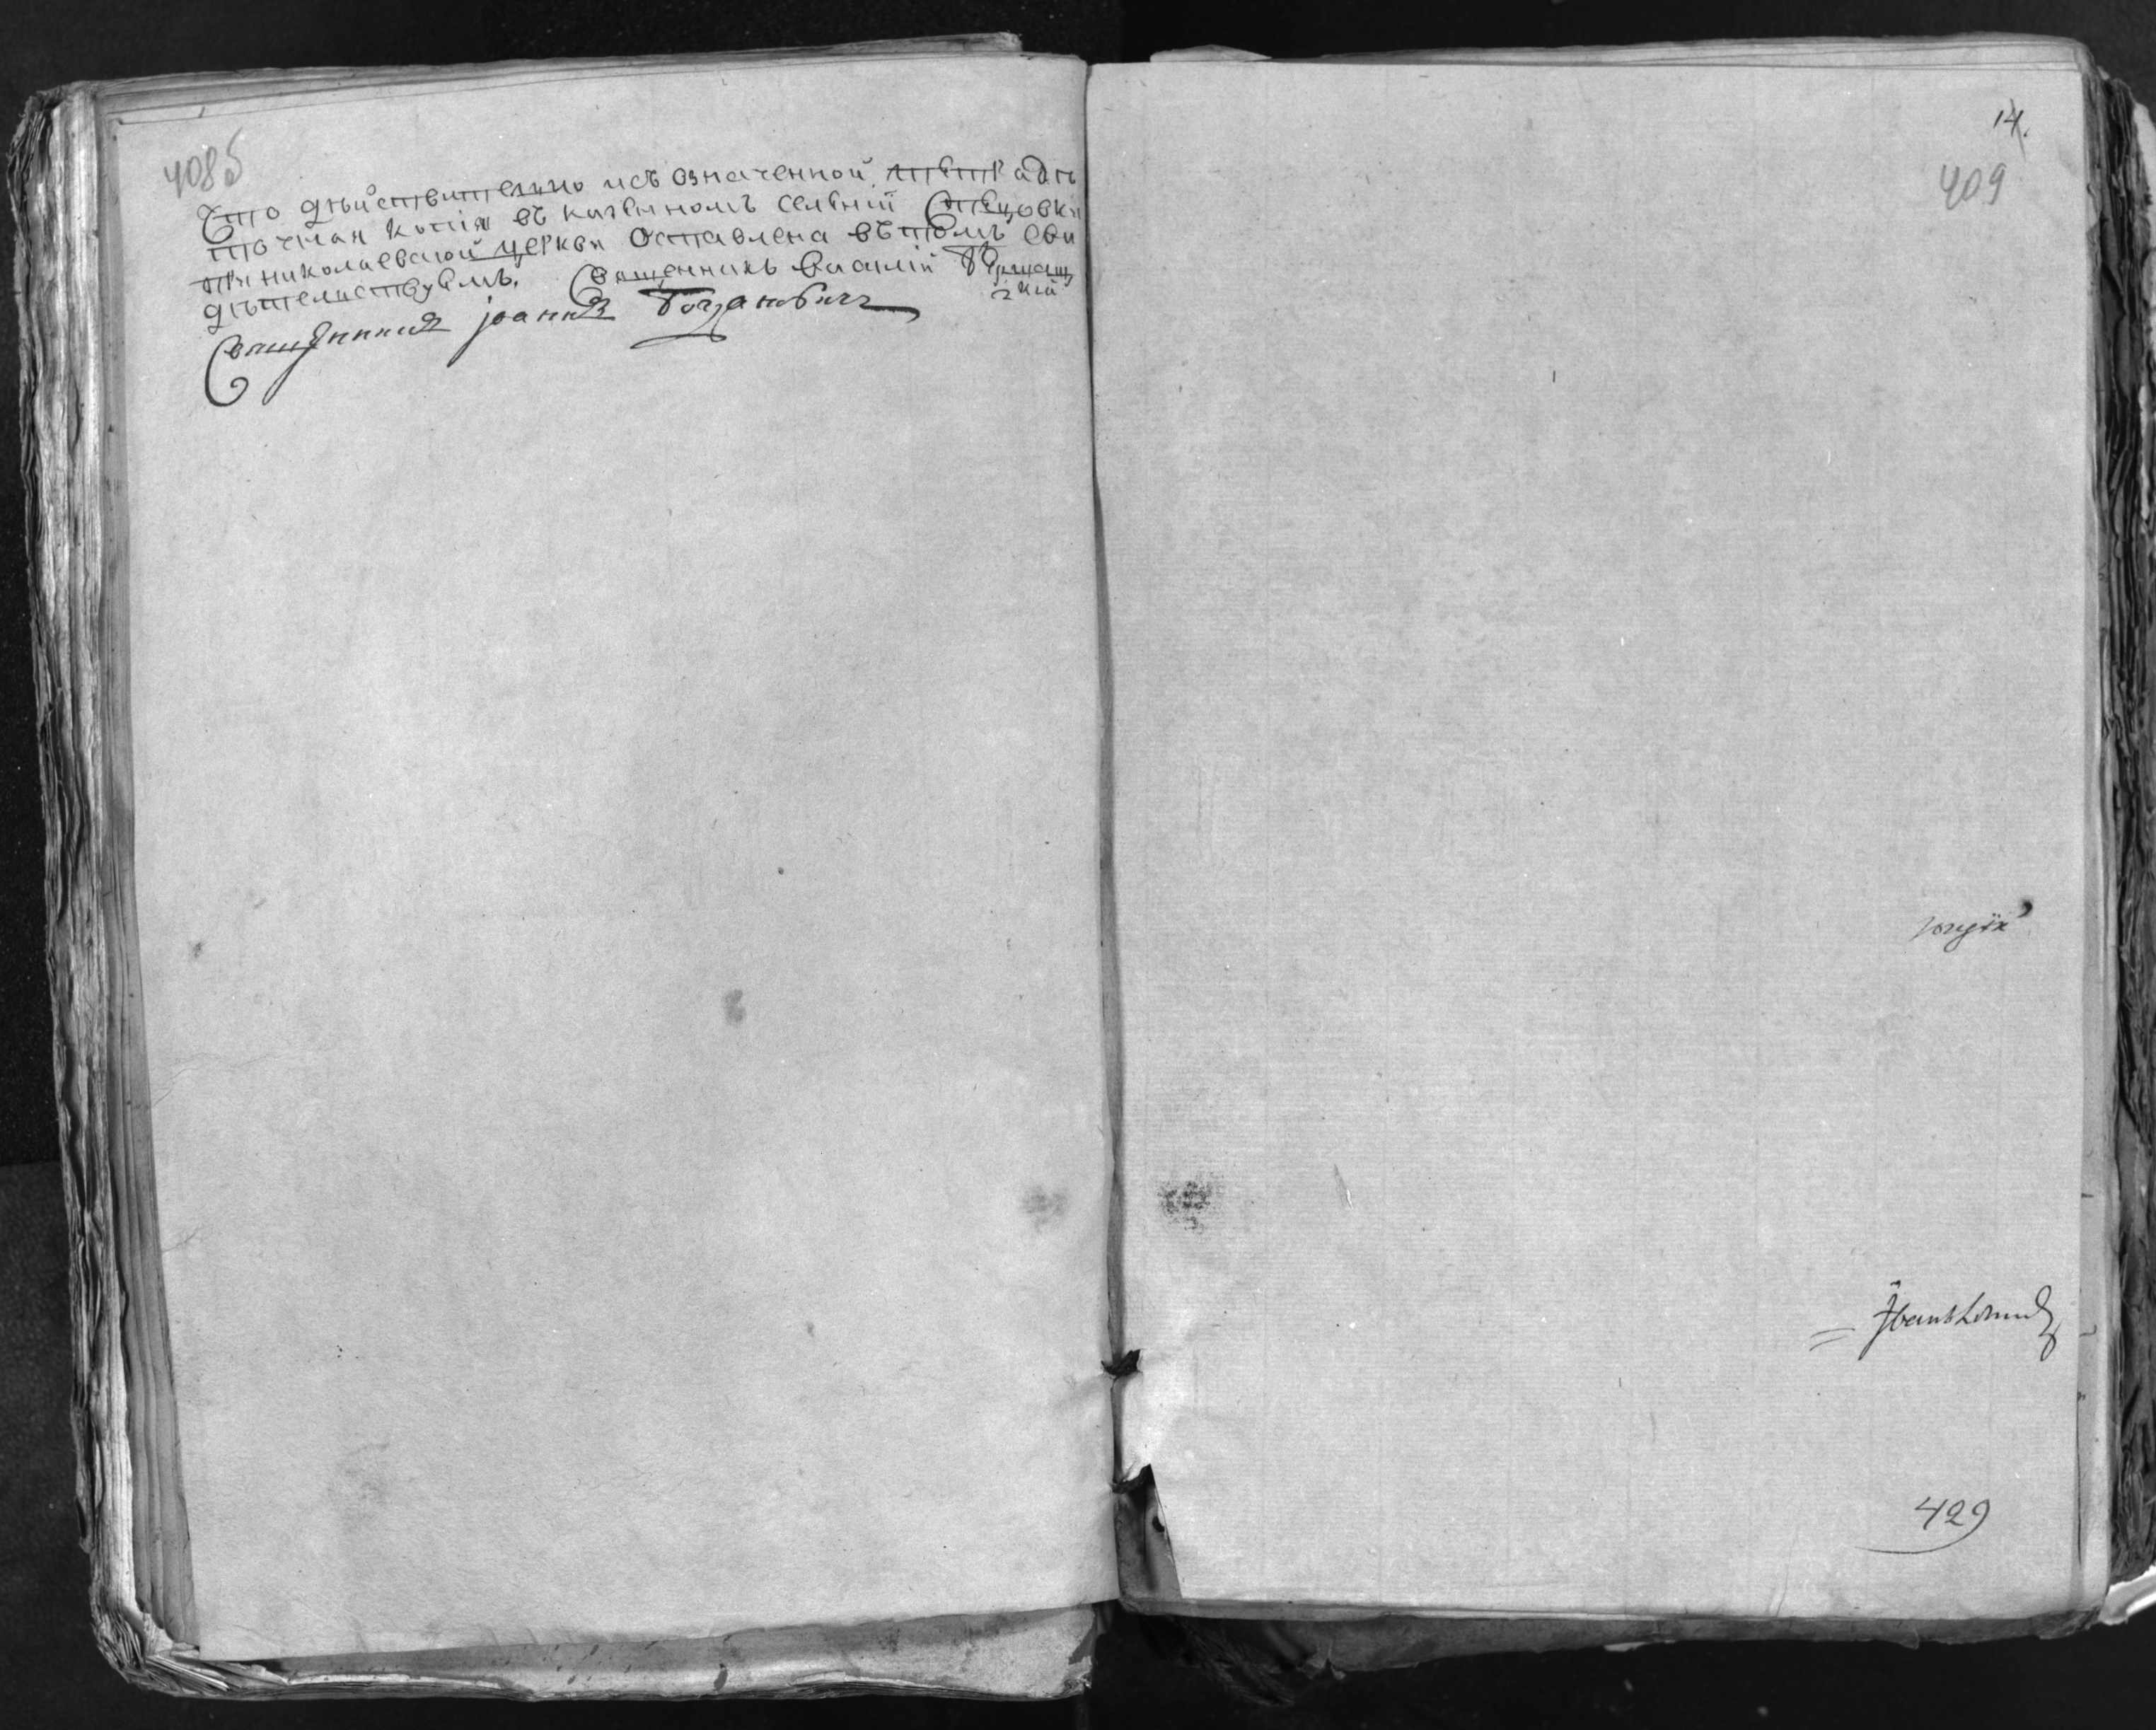 408б
Что дѣйствительно исъ означенной тетрадѣ
точная копія въ казенномъ селеніи Стецовки
при николаевской церкви Оставлена въ томъ сви
дѣтельствуемъ. Священникъ Василій
Священникъ Іоаннъ Богдановичъ
14.
409
Иванъ
429